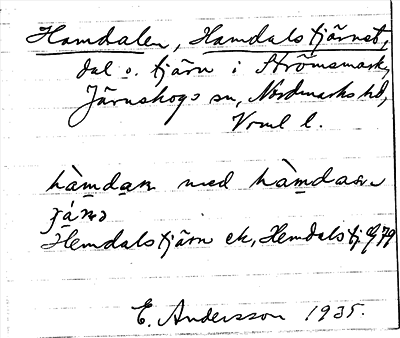 Hamdalen, Hamdalstjärnet,
dal o. tjärn i Strömsmark,
Järnskogs sn, Nordmarks hd,
Vrml l.
hàmdaɴ med hàmdas
Hemdalstjärn ek, Hemdalstj G 79
E. Andersson 1935.